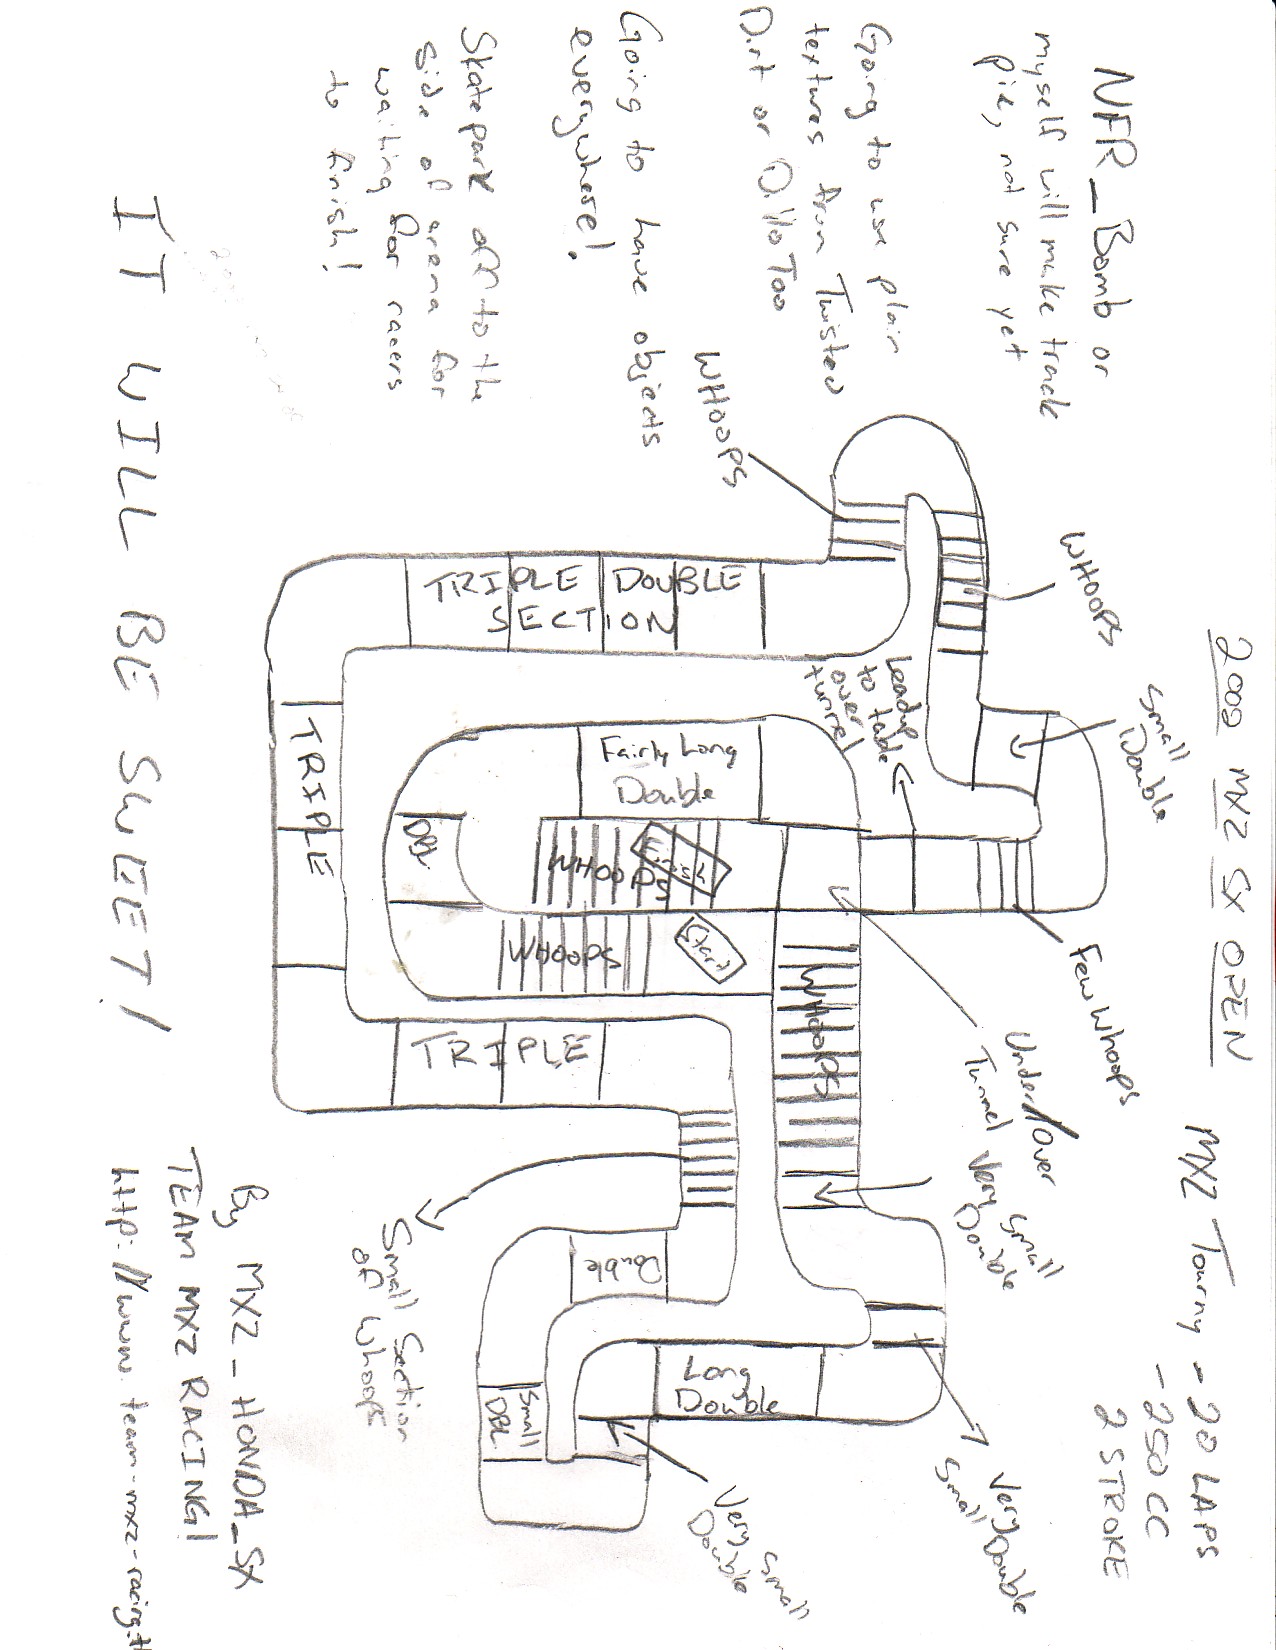 2009 MX2 SX OPEN
MX2 Tourny - 20 LAPS
- 250 CC
2 STROKE
NFR_Bomb or
myself will make track
pie, not sure yet
Going to use plain
textures from Twisted
Dirt or Dillo Too
Going to have objects
everywhere!
Skatepark off to the
side of arena for
waiting for racers
to finish!
WHOOPS
WHOOPS
Small
Double
Few Whoops
Under/Over
Tunnel
Very Small
Double
Very Double
Small
Leadup
to table
over
tunnel
WHOOPS
Fairly Long
Double
Finish
WHOOPS
Start
WHOOPS
DBL
TRIPLE DOUBLE
SECTION
TRIPLE
TRIPLE
Long
Double
Double
Small
DBL
Very Small
Double
Small Section
of Whoops
By MX2_HONDA_SX
TEAM MX2 RACING!
http://www.team-mx2-racing.t
IT WILL BE SWEET!